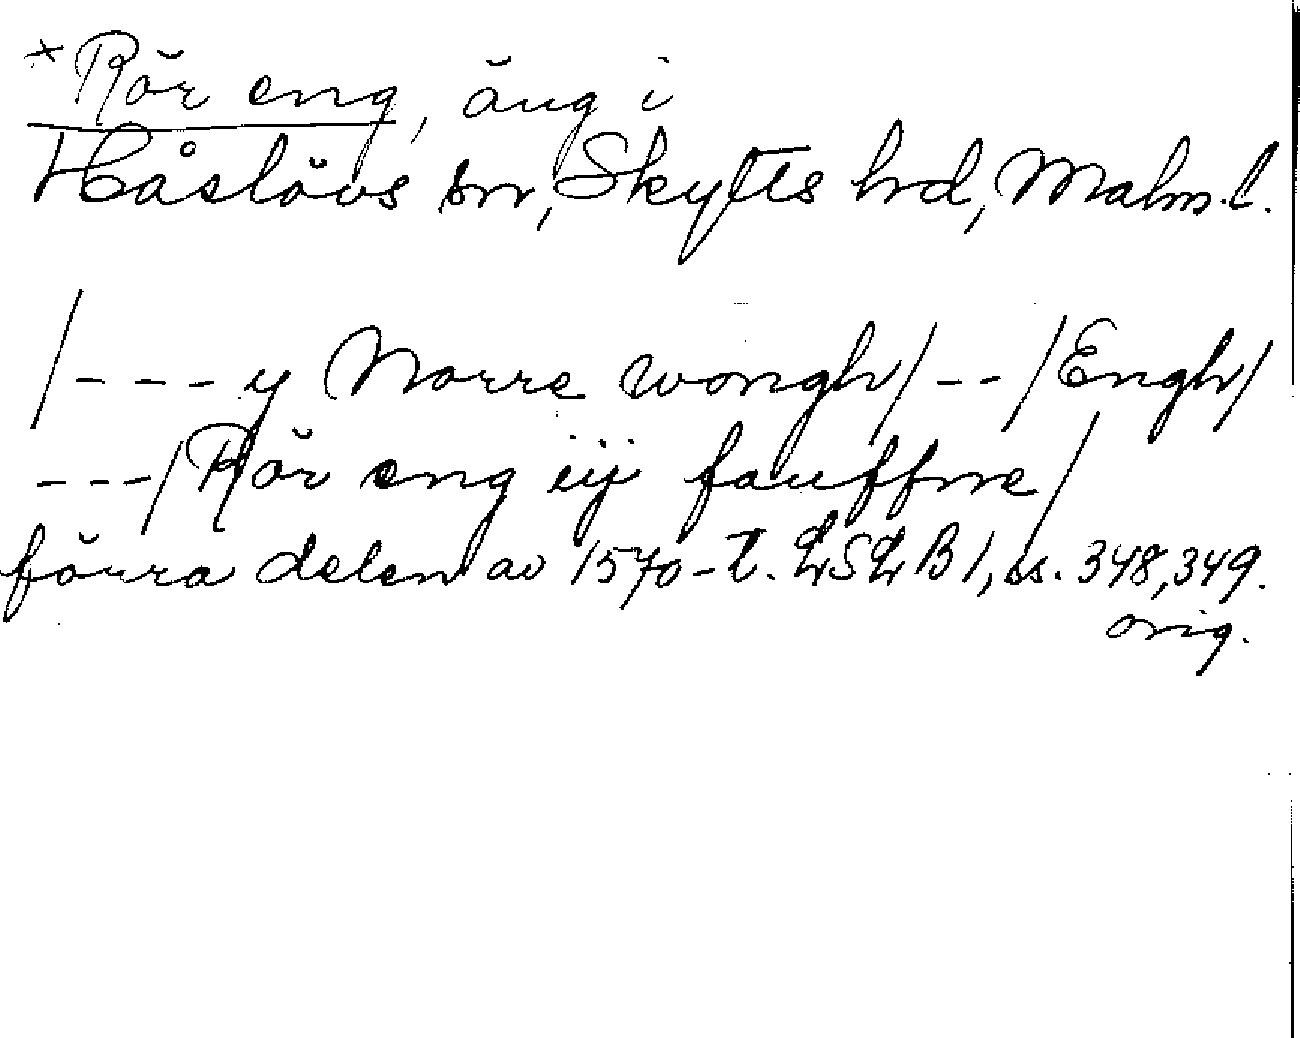 *Rör eng, äng i
Håslövs sn, Skytts hd, Malm.l.
/---y Norre wongh/--/Engh/
---/Rör eng iij fauffne/
förra delen av 1570-t. LSLB1, ss. 348, 349.
orig.